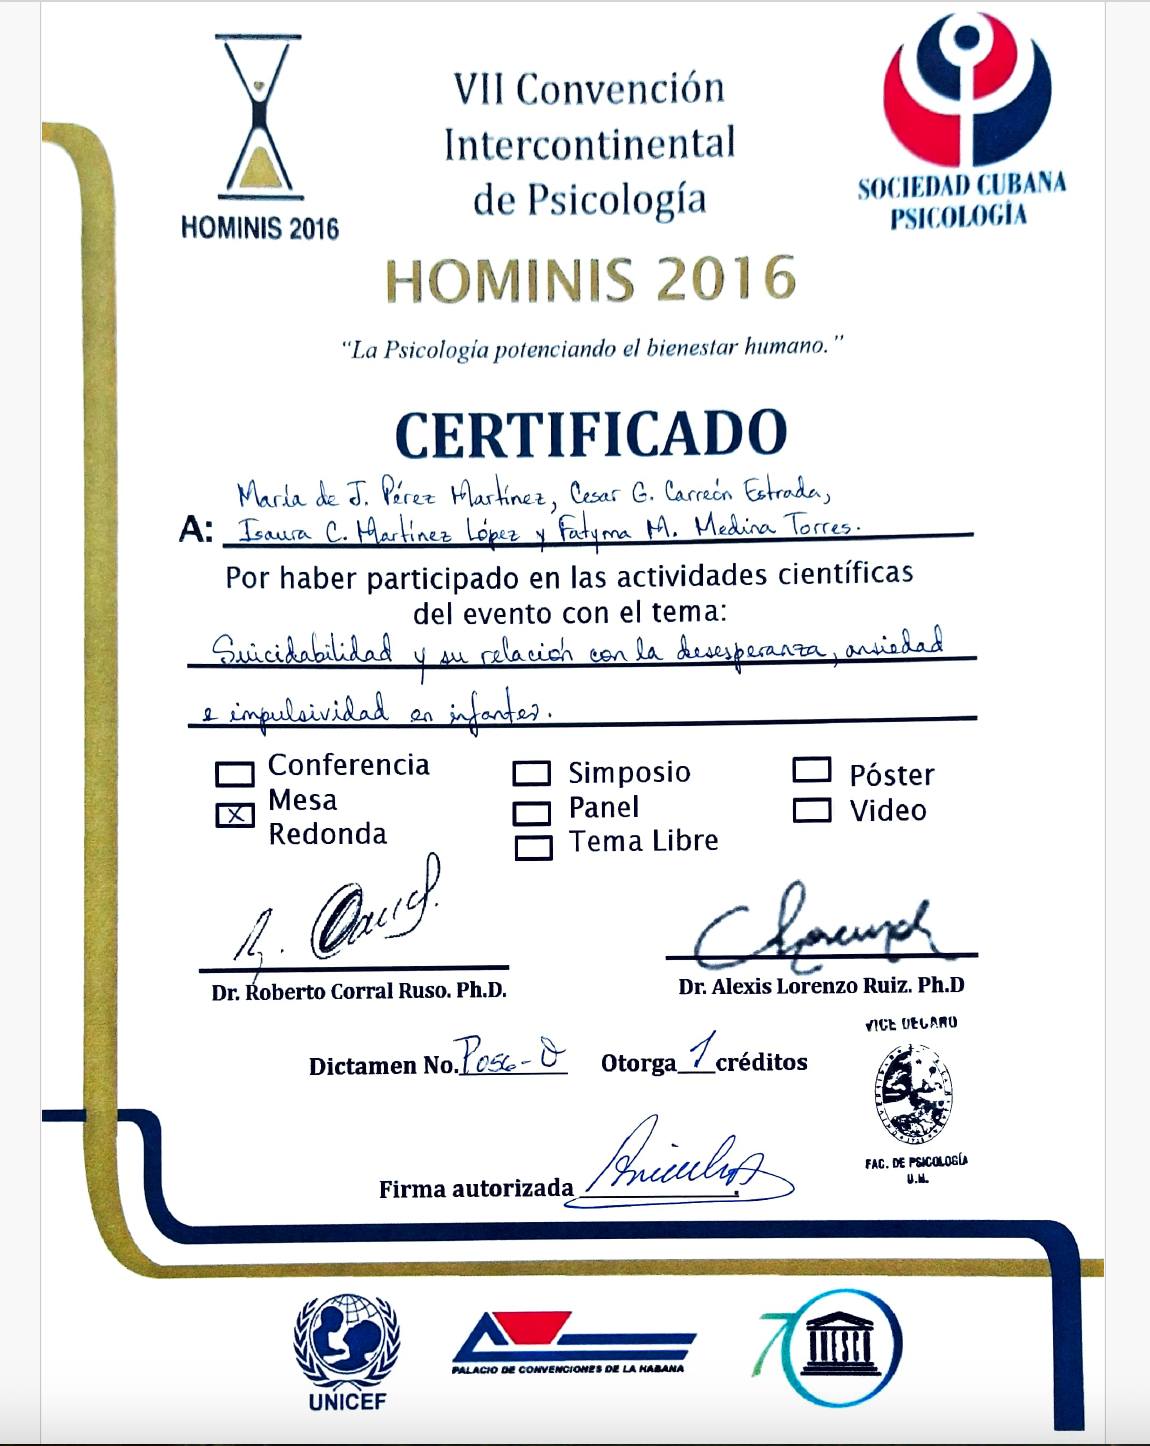 VII Convención
Intercontinental
de Psicología
HOMINIS 2016
SOCIEDAD CUBANA
PSICOLOGÍA
HOMINIS 2016
“La Psicología potenciando el bienestar humano.”
CERTIFICADO
María de J. Pérez Martínez, Cesar G. Carreón Estrada,
A: Isaura C. Martínez López y Fatyma M. Medina Torres.
Por haber participado en las actividades científicas
del evento con el tema:
Suicidabilidad y su relación con la desesperanza, ansiedad
e impulsividad en infantes.
Conferencia
Mesa
Redonda
X
Simposio
Panel
Tema Libre
Póster
Video
Dr. Roberto Corral Ruso. Ph.D.
Dr. Alexis Lorenzo Ruiz. Ph.D
VICE DECANO
Dictamen No. Otorga 1 créditos
FAC. DE PSICOLOGÍA
U.H.
Firma autorizada
UNICEF
PALACIO DE CONVENCIONES DE LA HABANA
70
UNESCO